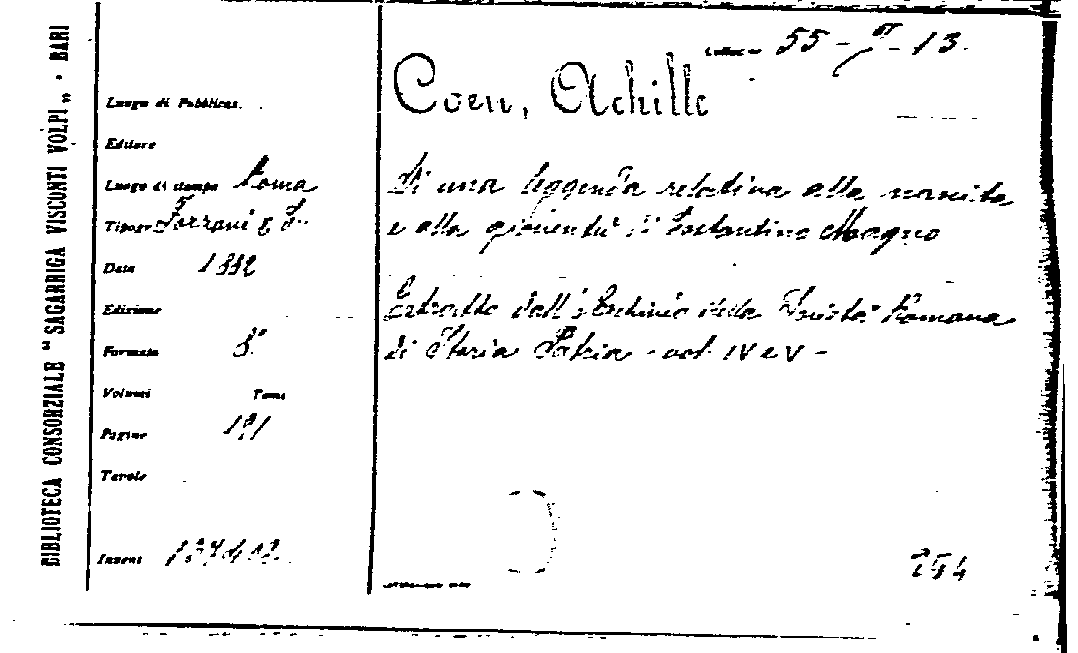 BIBLIOTECA CONSORZIALE "SAGARRIGA VISCONTI VOLPI„ - BARI
Collocaz. 55 - - 13.
Coen, Achille
Luogo di Pubblicaz.
Editore
Luogo di stampa Roma
Tipogr. Forzani & C.
Data 1882
Edizione
Formato 8°
Volumi Tomi
Pagine 191
Tavole
Invent
Di una leggenda relativa alla nascita
e alla gioventù di Costantino Magno
Estratto dall'Archivio della Società Romana
di Storia Patria - vol IV e V -
254